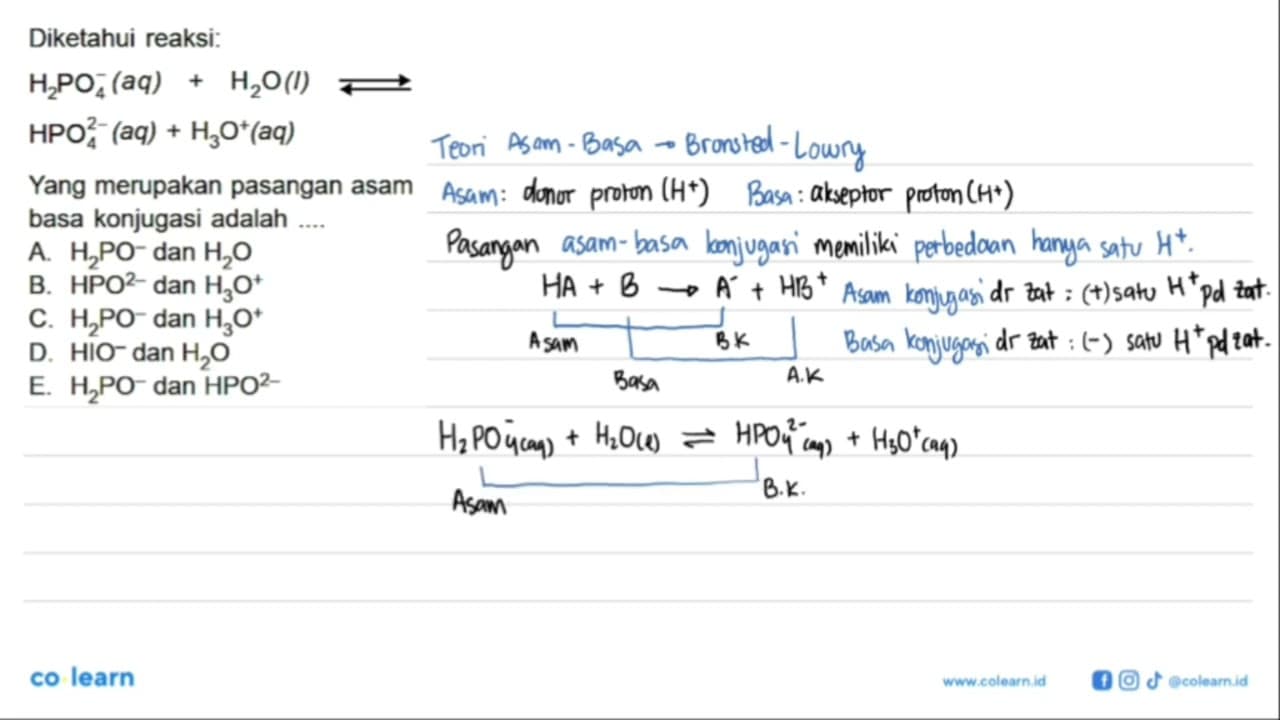 Diketahui reaksi:
H₂PO₄⁻(aq) + H₂O(l) ⇌
HPO₄²⁻(aq) + H₃O⁺(aq)
Yang merupakan pasangan asam
basa konjugasi adalah ....
A. H₂PO⁻ dan H₂O
B. HPO²⁻ dan H₃O⁺
C. H₂PO⁻ dan H₃O⁺
D. HIO⁻ dan H₂O
E. H₂PO⁻ dan HPO²⁻
Teori Asam-Basa → Bronsted-Lowry
Asam: donor proton (H⁺) Basa: akseptor proton (H⁺)
Pasangan asam-basa konjugasi memiliki perbedaan hanya satu H⁺.
HA + B → A⁻ + HB⁺ Asam konjugasi dr zat : (+) satu H⁺ pd zat.
Asam B.K Basa konjugasi dr zat : (-) satu H⁺ pd zat.
Basa A.K
H₂PO₄⁻(aq) + H₂O(l) ⇌ HPO₄²⁻(aq) + H₃O⁺(aq)
Asam B.K.
co learn
www.colearn.id @colearn.id